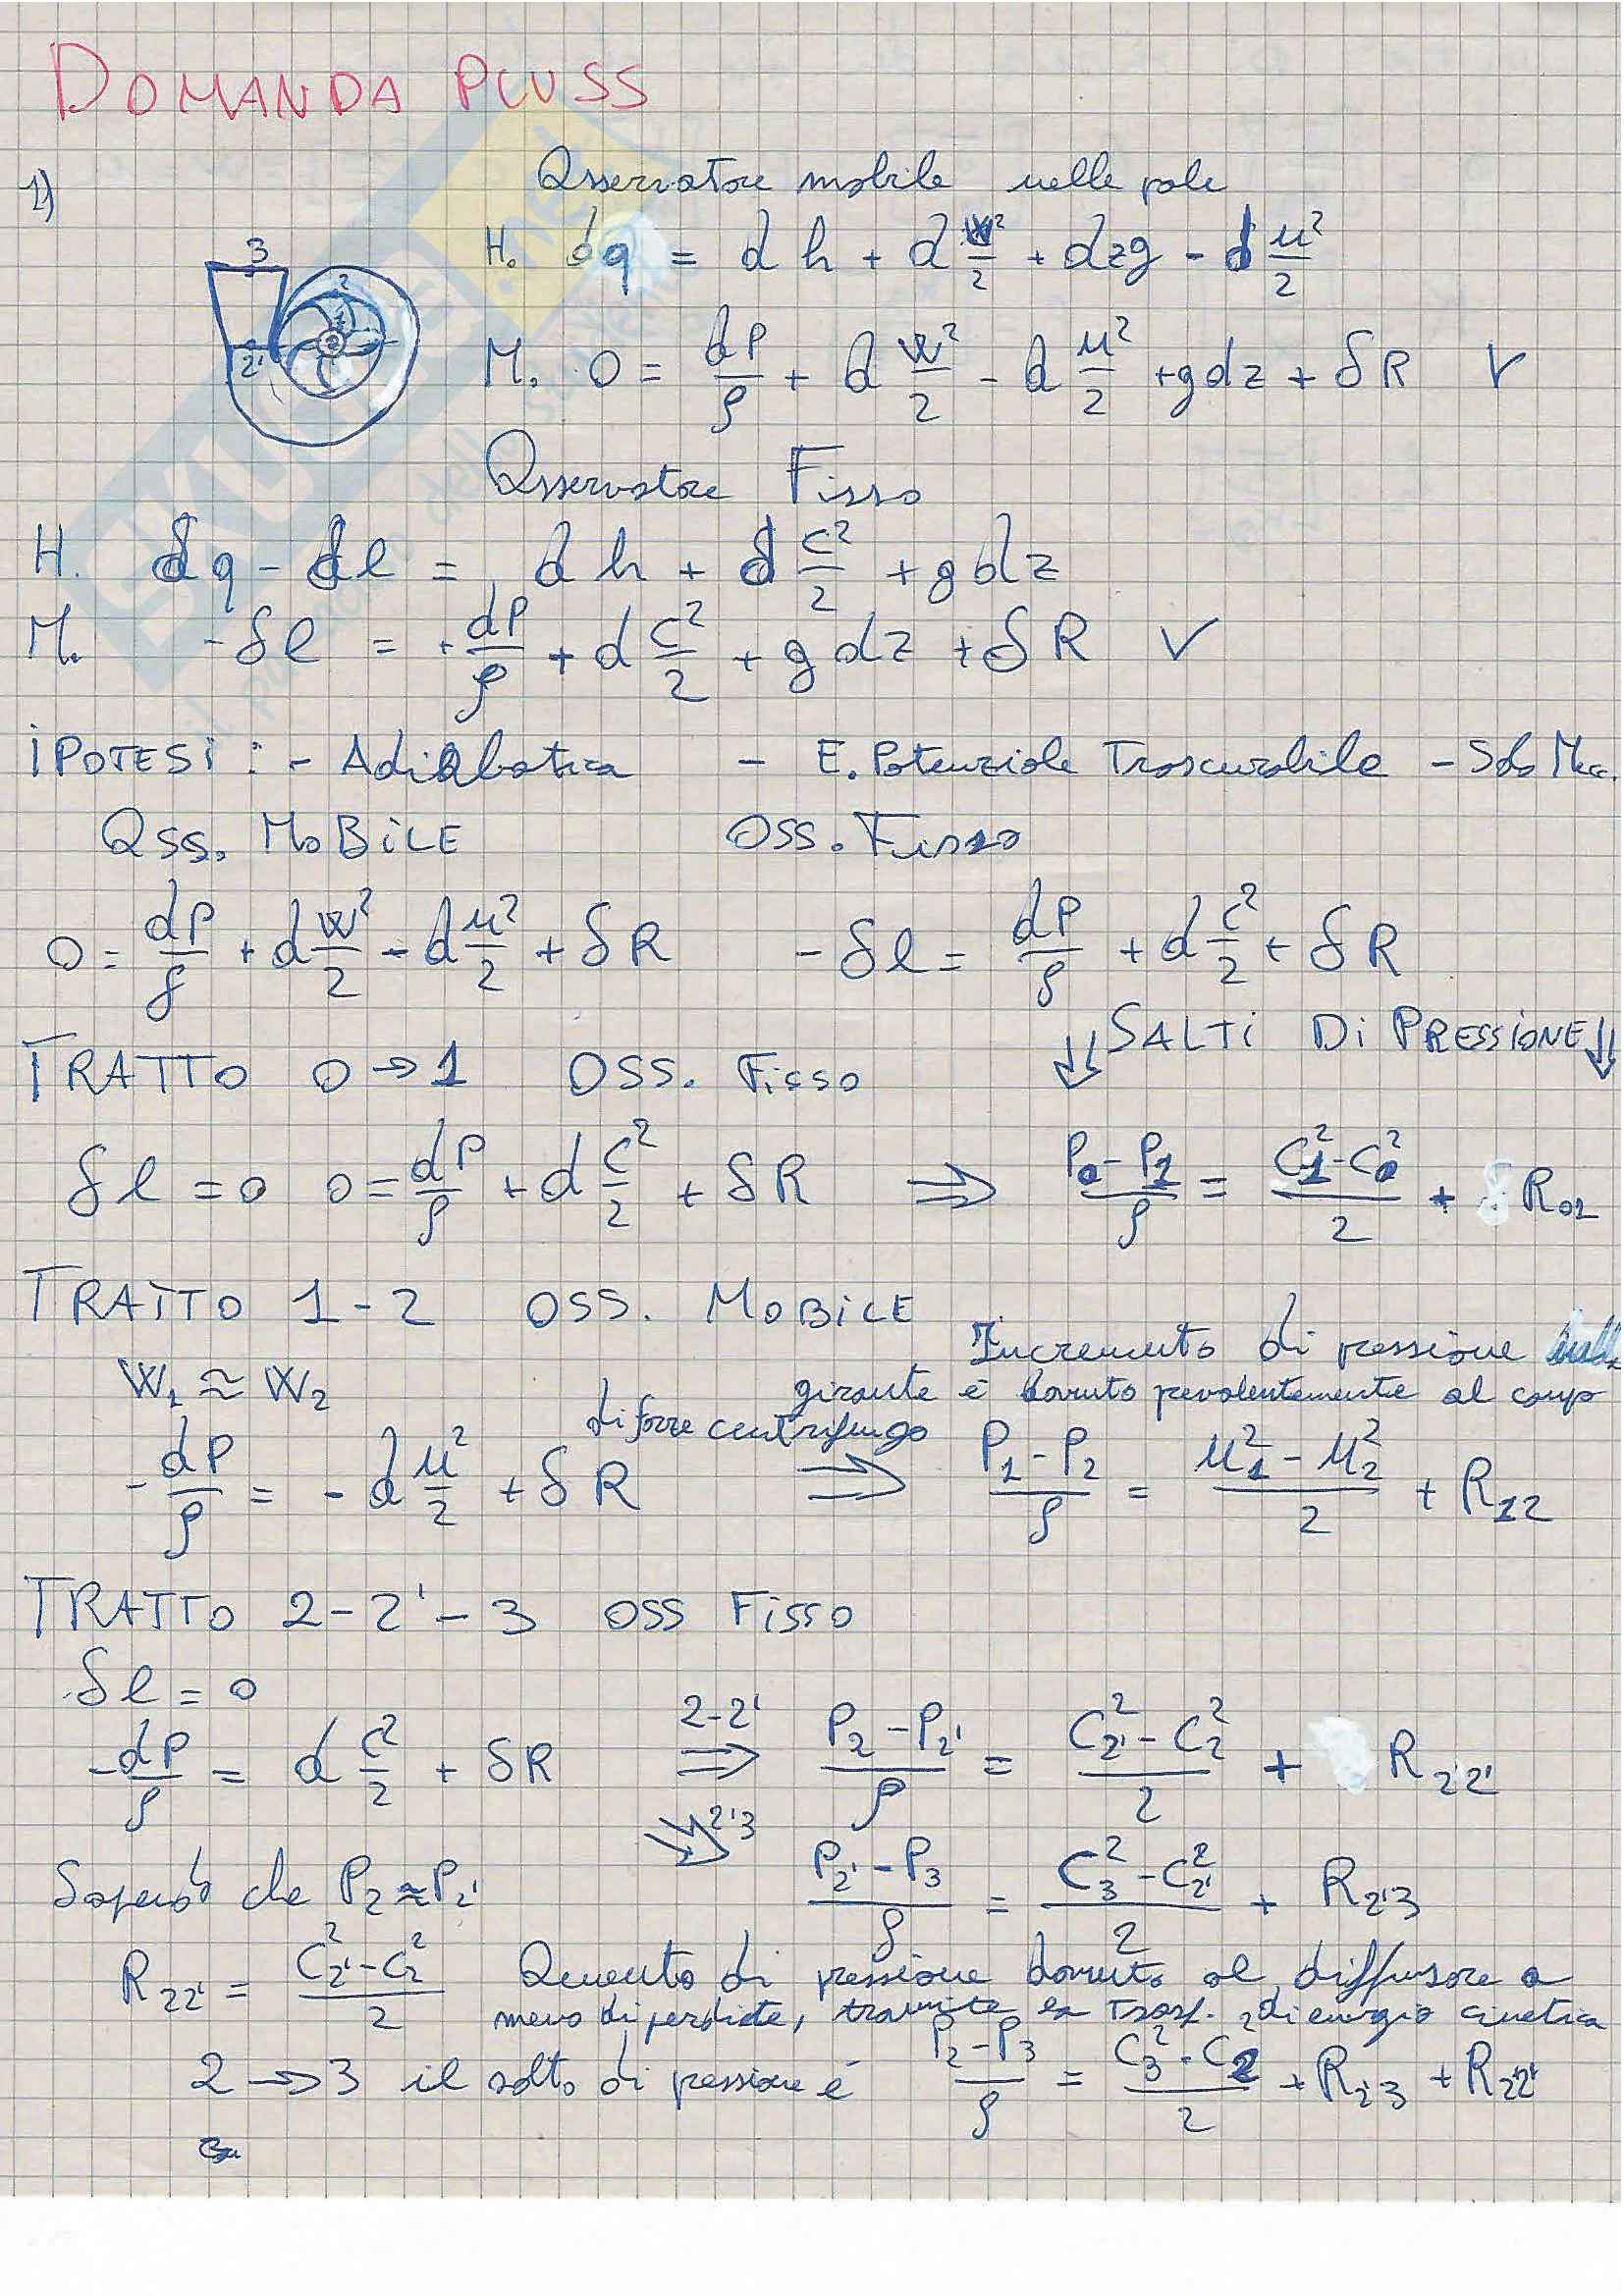 DOMANDA PLUSS
1)
Osservatore mobile nelle pale
H. dq = dh + d w²/2 + dzg - d u²/2
3
2
1
2'
M. 0 = dP/ρ + d w²/2 - d u²/2 + gdz + δR V
Osservatore Fisso
H. δq - δl = dh + d c²/2 + gdz
M. -δl = +dP/ρ + d c²/2 + gdz + δR V
IPOTESI : - Adiabatica - E. Potenziale Trascurabile - Solo Mec.
OSS. MOBILE OSS. Fisso
0 = dP/ρ + d w²/2 - d u²/2 + δR -δl = dP/ρ + d c²/2 + δR
↓↓ SALTI DI PRESSIONE ↓↓
TRATTO 0→1 OSS. Fisso
δl = 0 0 = dP/ρ + d c²/2 + δR ⇒ (P₀-P₁)/ρ = (C₁²-C₀²)/2 + R₀₁
TRATTO 1-2 OSS. MOBILE
Incremento di pressione
W₁ ≈ W₂ girante è dovuto prevalentemente al campo
di forze centrifugo
-dP/ρ = -d u²/2 + δR ⇒ (P₁-P₂)/ρ = (u₁²-u₂²)/2 + R₁₂
TRATTO 2-2'-3 OSS Fisso
δl = 0
-dP/ρ = d c²/2 + δR 2-2' ⇒ (P₂-P₂')/ρ = (C₂'²-C₂²)/2 + R₂₂'
2'3 ⇒ (P₂'-P₃)/ρ = (C₃²-C₂'²)/2 + R₂'₃
Sapendo che P₂≈P₂'
R₂₂' = (C₂'²-C₂²)/2 Aumento di pressione dovuto al diffusore a
meno di perdite, tramite la trasf. di energia cinetica
2→3 il salto di pressione è (P₂-P₃)/ρ = (C₃²-C₂²)/2 + R₂'₃ + R₂₂'
SKUOLA.net